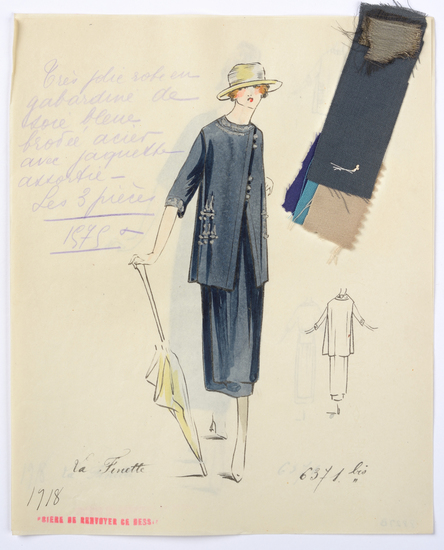 Très jolie robe en
gabardine de
soie bleue
brodée acier
avec jaquette
assortie –
Les 3 pièces
1575
La Finette
6371 bis
1918
PRIÈRE DE RENVOYER CE DESSIN